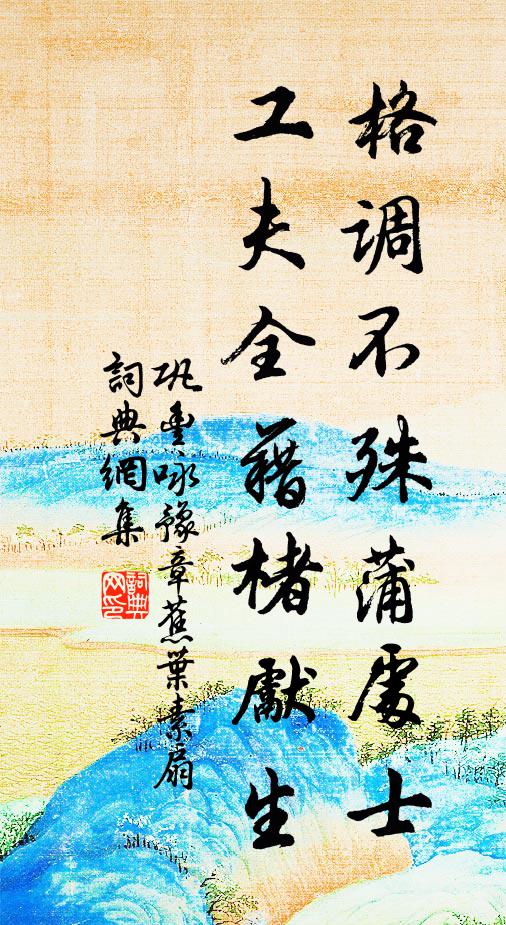 格调不殊蒲處士
工夫全藉楮獻生
巩豐咏豫章蕉葉素扇
詞典網集
詞典网印